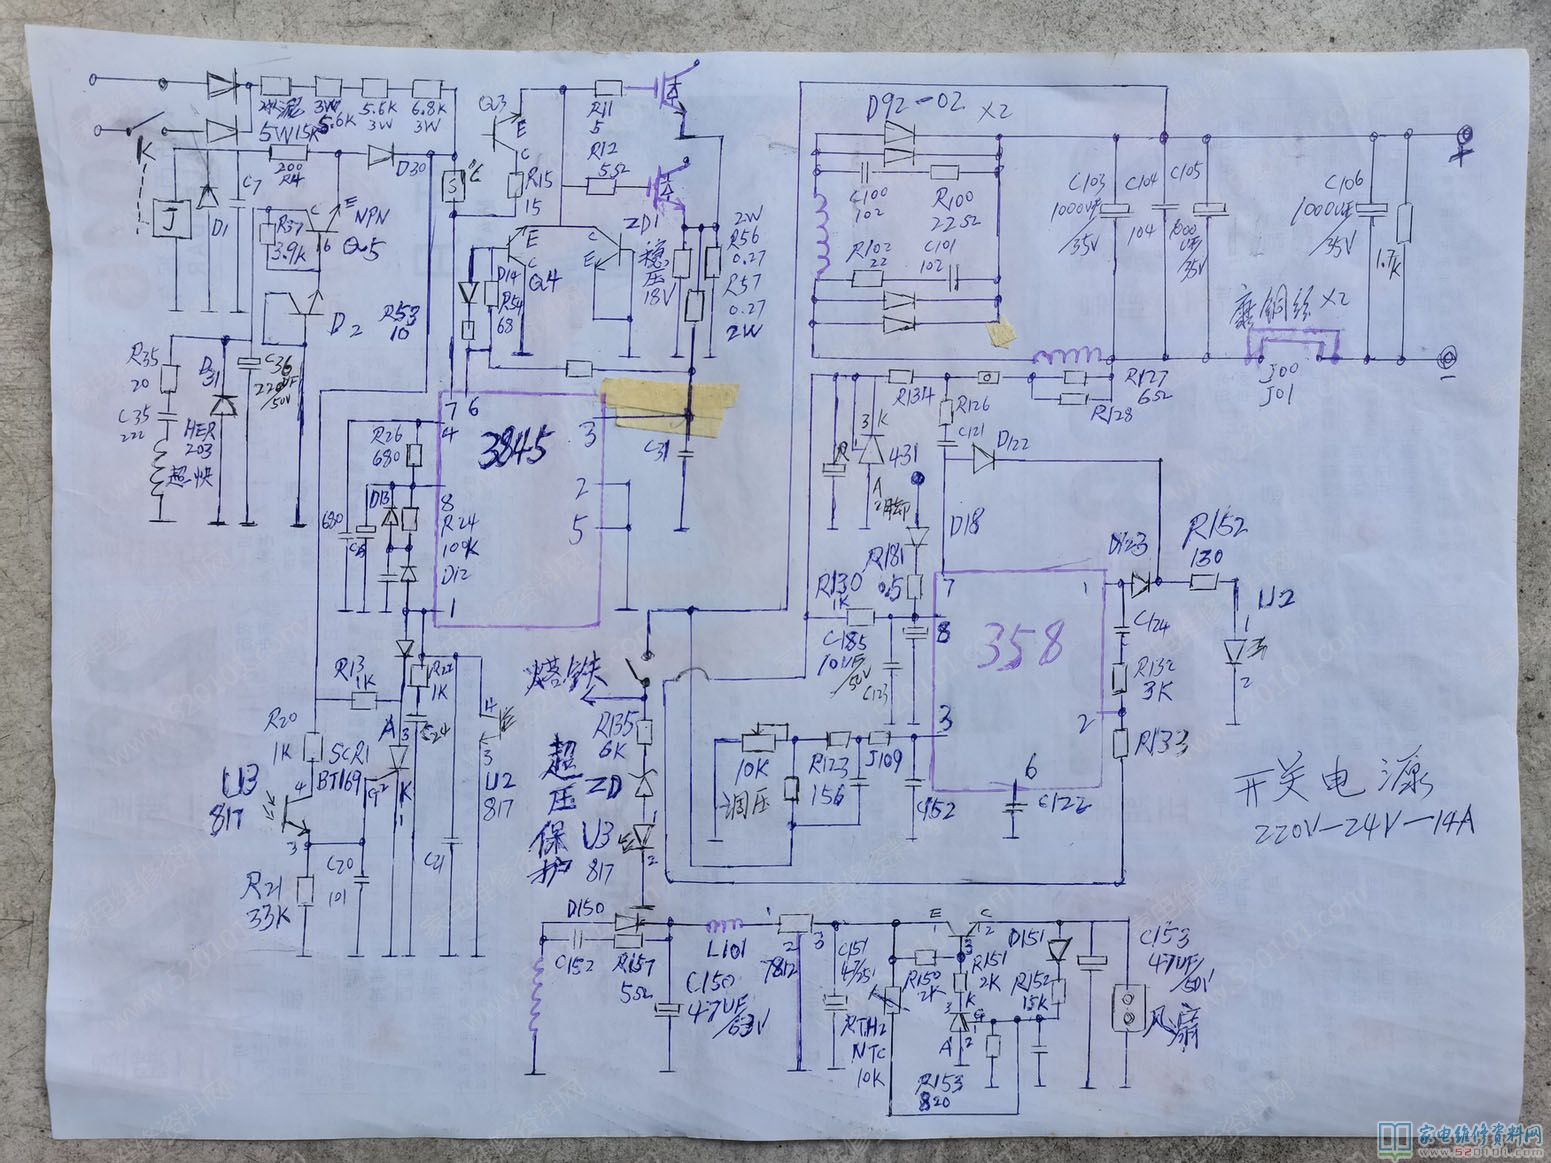 水泥
5W15K
3W
5.6K
5.6K
3W
6.8K
3W
Q3
E
C
R15
15
R11
5
R12
5Ω
K
J
D1
C7
200
R4
D30
R37
3.9K
C
E
NPN
6
Q5
D2
R53
10
R35
20
C35
222
D31
HER
203
超快
C36
220UF
/50V
D14
R54
68
E
C
Q4
C
E
ZD1
稳
压
18V
2W
R56
0.27
R57
0.27
2W
7
6
4
3845
3
2
5
8
1
C31
R26
680
680
C6
D13
R24
100K
D12
R13
1K
R22
1K
C24
R20
1K
SCR1
BT169
A
3
G
2
K
1
U3
817
4
3
R21
33K
C20
101
C21
4
3
U2
817
D92-02
X2
C100
102
R100
22Ω
R102
22
C101
102
C103
1000UF
/35V
C104
104
C105
1000
UF
/35V
C106
1000UF
/35V
1.7K
康铜丝X2
J00
J01
+
-
R127
6Ω
R128
R134
R126
C121
D122
R
3
K
431
A
2脚
D18
R181
0.5
R130
1K
C185
10UF
/50V
C123
7
1
8
358
3
2
6
D123
R152
130
U2
1
2
C124
R132
3K
R133
C122
烙铁
R135
6K
ZD
U3
817
1
2
超
压
保
护
10K
调压
R123
156
J109
C152
开关电源
220V-24V-14A
D150
C152
R157
5Ω
L101
C150
47UF
/63V
1
2
3
7812
C151
47/35V
RTH2
NTC
10K
E
C
1
2
3
R150
2K
R151
2K
K
3
G
A
2
R153
820
D151
R152
15K
C153
47UF/
50V
风扇
家电维修资料网
www.520101.com